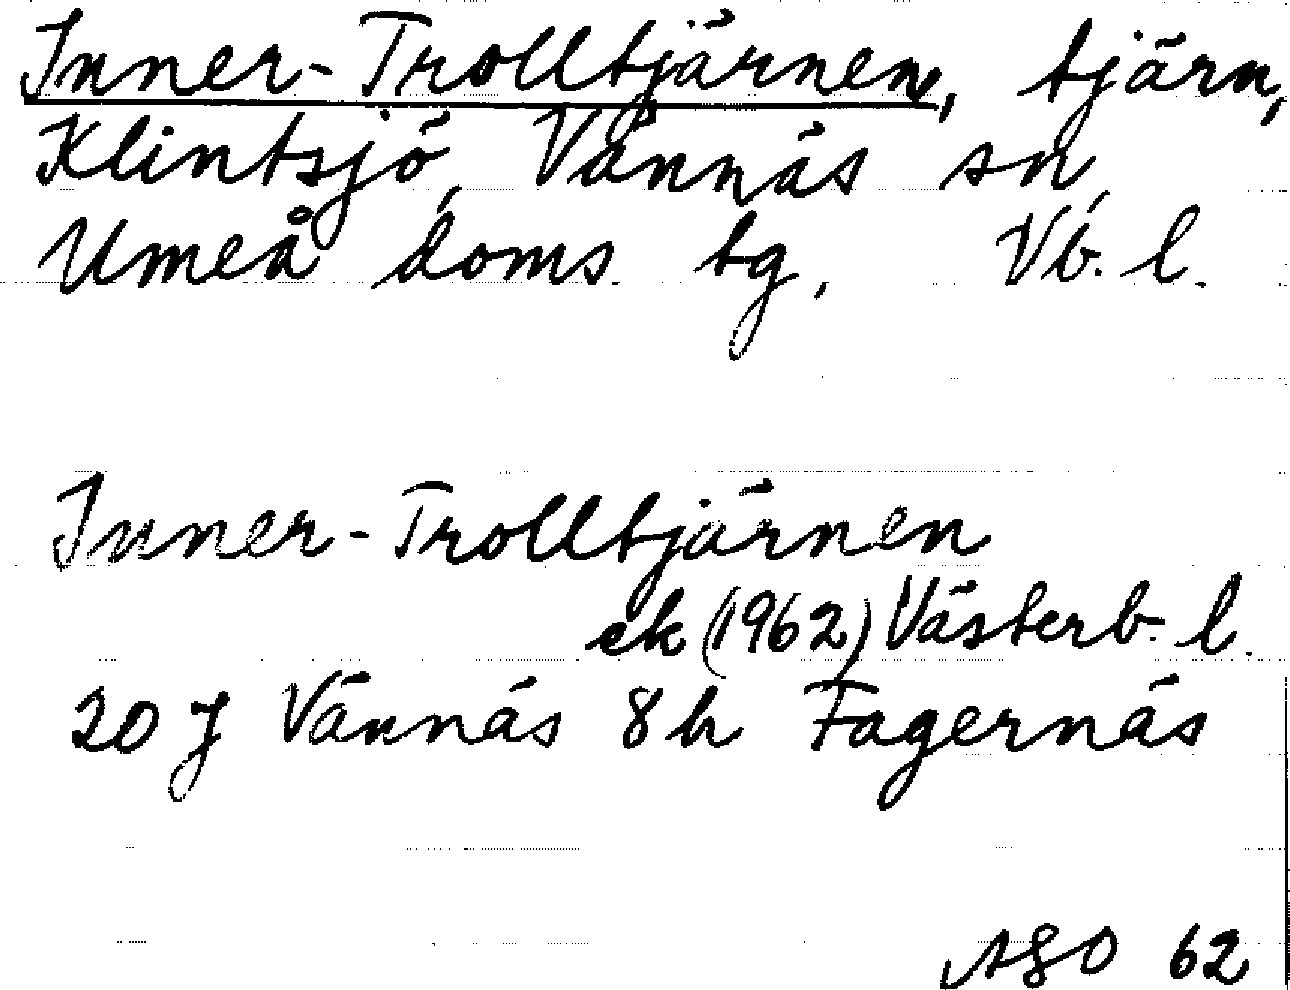 Inner-Trolltjärnen, tjärn,
Klintsjö, Vännäs sn,
Umeå doms. tg, Vb. l.
Inner-Trolltjärnen
ek (1962) Västerb. l.
20 J Vännäs 8 h Fagernäs
ASO 62